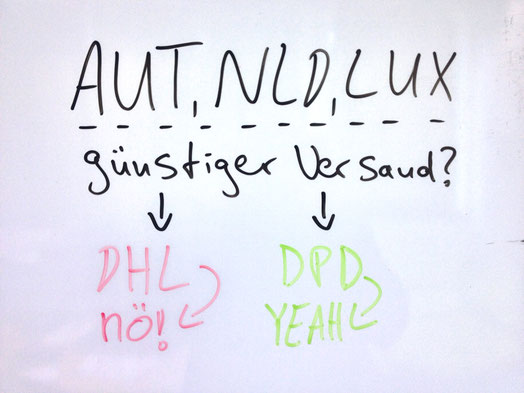 AUT, NLD, LUX
günstiger Versand?
DHL DPD
nö! YEAH